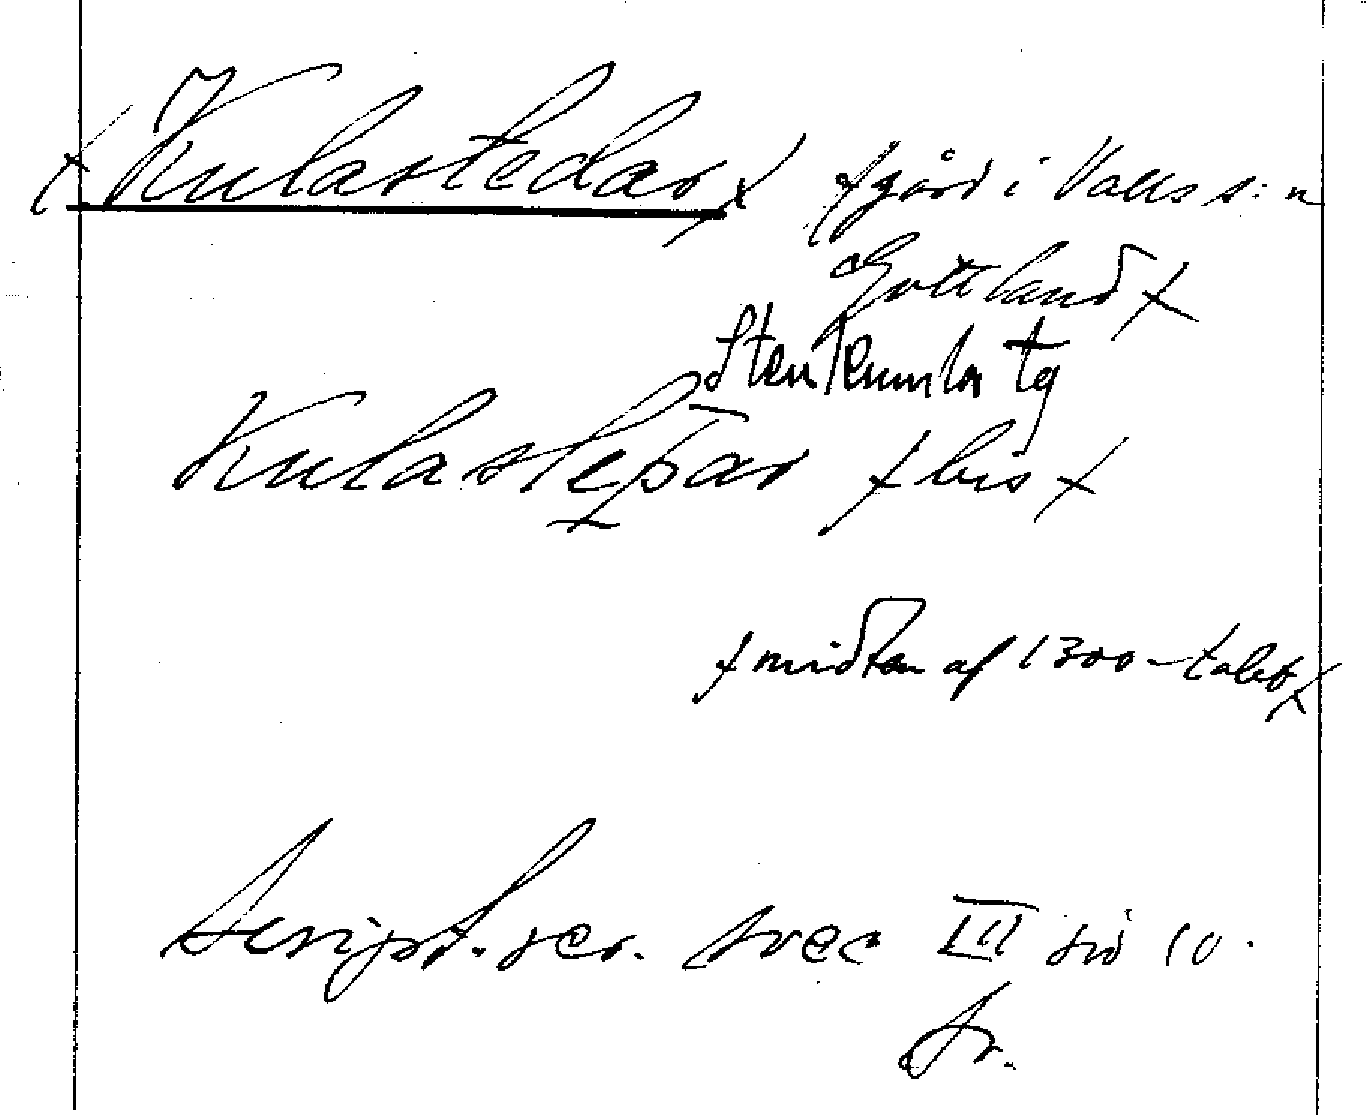 ⸔Kulastedar⸕ ⸔gård i Valls s:n
Gottland⸕
Stenkumla tg
Kulasteþar ⸔bis⸕
⸔midten af 1300-talet⸕
Script. rer. svec III sid 10.
Sv.